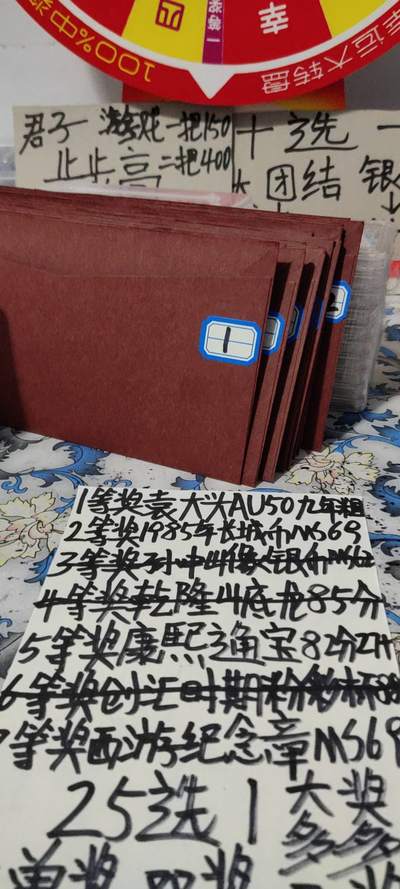 100%中奖
幸
幸运大转盘
君子 游戏 一把150
止步 二把400
十选一
团结 银
1
2
1等奖袁大头AU50九年粗
2等奖1985年长城币MS69
3等奖孙中山像银币MS62
4等奖乾隆山底龙85分
5等奖康熙通宝82分
6等奖创汇时期粉彩杯
等奖西游纪念章MS69
25选1大奖
多多